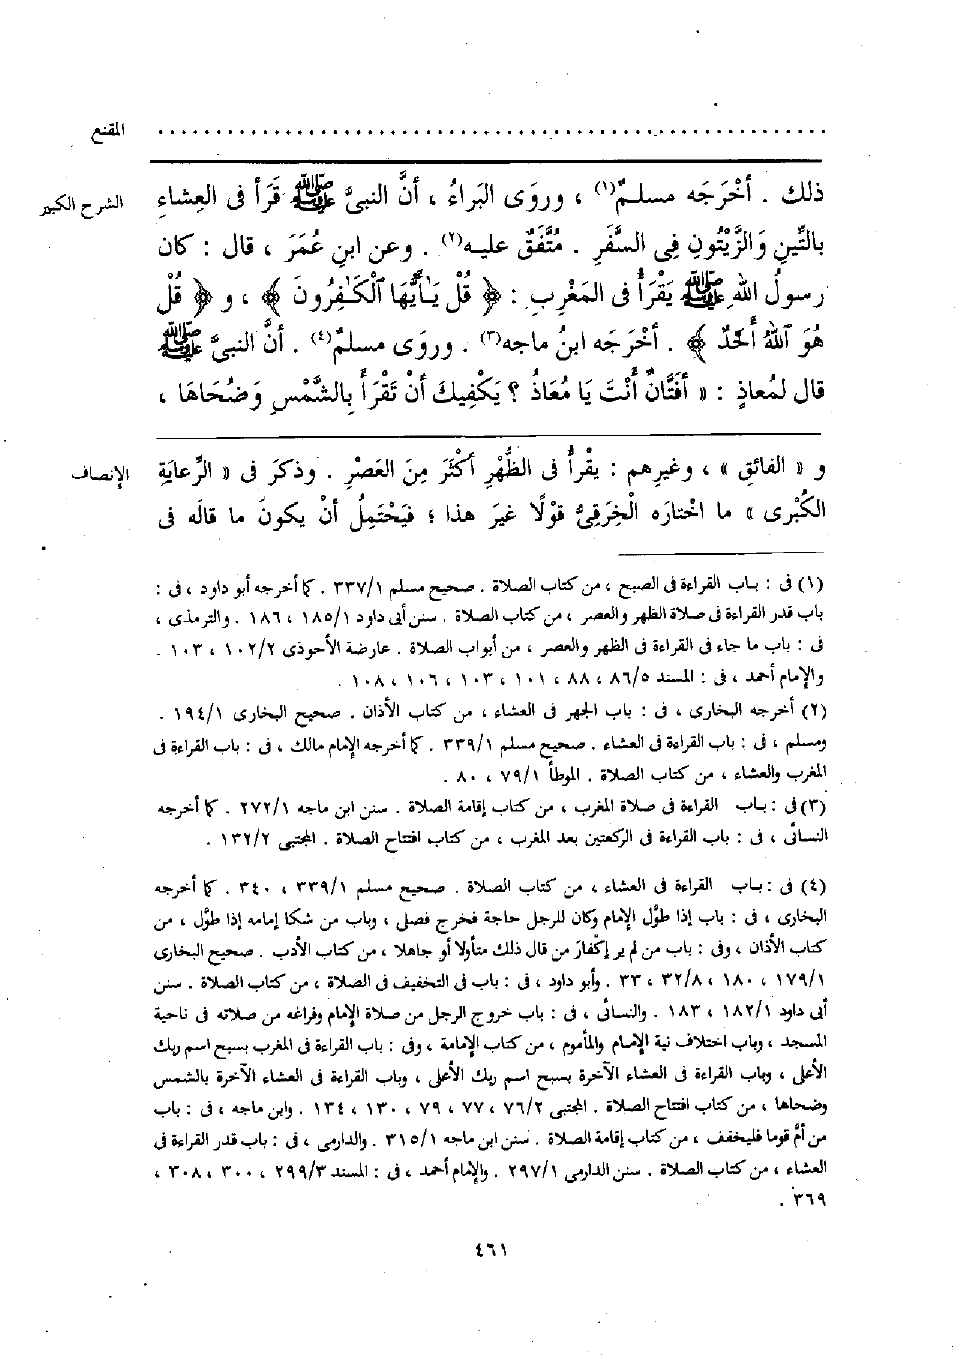 المقنع . . . . . . . . . . . . . . . . . . . . . . . . . . . . . . . . . . . . . . . . . . . . . . . . . . . . . . . .
الشرح الكبير
ذلك . أخْرَجَه مسلمٌ(١) ، وروَى البَراءُ ، أنَّ النبىَّ ﷺ قَرَأ فى العِشاءِ
بالتِّينِ وَالزَّيْتُونِ فِى السَّفَرِ . مُتَّفَقٌ عليه(٢) . وعن ابنِ عُمَرَ ، قال : كان
رسولُ اللهِ ﷺ يَقْرَأُ فى المَغْرِبِ : ﴿ قُلْ يَـٰأَيُّهَا ٱلْكَـٰفِرُونَ ﴾ ، و ﴿ قُلْ
هُوَ ٱللهُ أَحَدٌ ﴾ . أخْرَجَه ابنُ ماجه(٣) . وروَى مسلمٌ(٤) . أنَّ النبىَّ ﷺ
قال لمُعاذٍ : « أفَتَّانٌ أَنْتَ يَا مُعَاذُ ؟ يَكْفِيكَ أنْ تَقْرَأَ بِالشَّمْسِ وَضُحَاهَا ،
الإنصاف
و « الفائقِ » ، وغيرِهم : يقْرأُ فى الظُّهْرِ أكْثَرَ مِنَ العَصْرِ . وذكَرَ فى « الرِّعايَةِ
الكُبْرى » ما اخْتارَه الْخِرَقِىُّ قوْلًا غيرَ هذا ؛ فيَحْتَمِلُ أنْ يكونَ ما قالَه فى
(١) فى : باب القراءة فى الصبح ، من كتاب الصلاة . صحيح مسلم ٣٣٧/١ . كما أخرجه أبو داود ، فى :
باب قدر القراءة فى صلاة الظهر والعصر ، من كتاب الصلاة . سنن أبى داود ١٨٥/١ ، ١٨٦ . والترمذى ،
فى : باب ما جاء فى القراءة فى الظهر والعصر ، من أبواب الصلاة . عارضة الأحوذى ١٠٢/٢ ، ١٠٣ .
والإمام أحمد ، فى : المسند ٨٦/٥ ، ٨٨ ، ١٠١ ، ١٠٣ ، ١٠٦ ، ١٠٨ .
(٢) أخرجه البخارى ، فى : باب الجهر فى العشاء ، من كتاب الأذان . صحيح البخارى ١٩٤/١ .
ومسلم ، فى : باب القراءة فى العشاء . صحيح مسلم ٣٣٩/١ . كما أخرجه الإمام مالك ، فى : باب القراءة فى
المغرب والعشاء ، من كتاب الصلاة . الموطأ ٧٩/١ ، ٨٠ .
(٣) فى : باب القراءة فى صلاة المغرب ، من كتاب إقامة الصلاة . سنن ابن ماجه ٢٧٢/١ . كما أخرجه
النسائى ، فى : باب القراءة فى الركعتين بعد المغرب ، من كتاب افتتاح الصلاة . المجتبى ١٣٢/٢ .
(٤) فى : باب القراءة فى العشاء ، من كتاب الصلاة . صحيح مسلم ٣٣٩/١ ، ٣٤٠ . كما أخرجه
البخارى ، فى : باب إذا طوَّل الإمام وكان للرجل حاجة فخرج فصلى ، وباب من شكا إمامه إذا طوَّل ، من
كتاب الأذان ، وفى : باب من لم ير إكْفارَ من قال ذلك متأولا أو جاهلا ، من كتاب الأدب . صحيح البخارى
١٧٩/١ ، ١٨٠ ، ٣٢/٨ ، ٣٣ . وأبو داود ، فى : باب فى التخفيف فى الصلاة ، من كتاب الصلاة . سنن
أبى داود ١٨٢/١ ، ١٨٣ . والنسائى ، فى : باب خروج الرجل من صلاة الإمام وفراغه من صلاته فى ناحية
المسجد ، وباب اختلاف نية الإمام والمأموم ، من كتاب الإمامة ، وفى : باب القراءة فى المغرب بسبح اسم ربك
الأعلى ، وباب القراءة فى العشاء الآخرة بسبح اسم ربك الأعلى ، وباب القراءة فى العشاء الآخرة بالشمس
وضحاها ، من كتاب افتتاح الصلاة . المجتبى ٧٦/٢ ، ٧٧ ، ٧٩ ، ١٣٠ ، ١٣٤ . وابن ماجه ، فى : باب
من أمَّ قوما فليخفف ، من كتاب إقامة الصلاة . سنن ابن ماجه ٣١٥/١ . والدارمى ، فى : باب قدر القراءة فى
العشاء ، من كتاب الصلاة . سنن الدارمى ٢٩٧/١ . والإمام أحمد ، فى : المسند ٢٩٩/٣ ، ٣٠٠ ، ٣٠٨ ،
٣٦٩ .
٤٦١